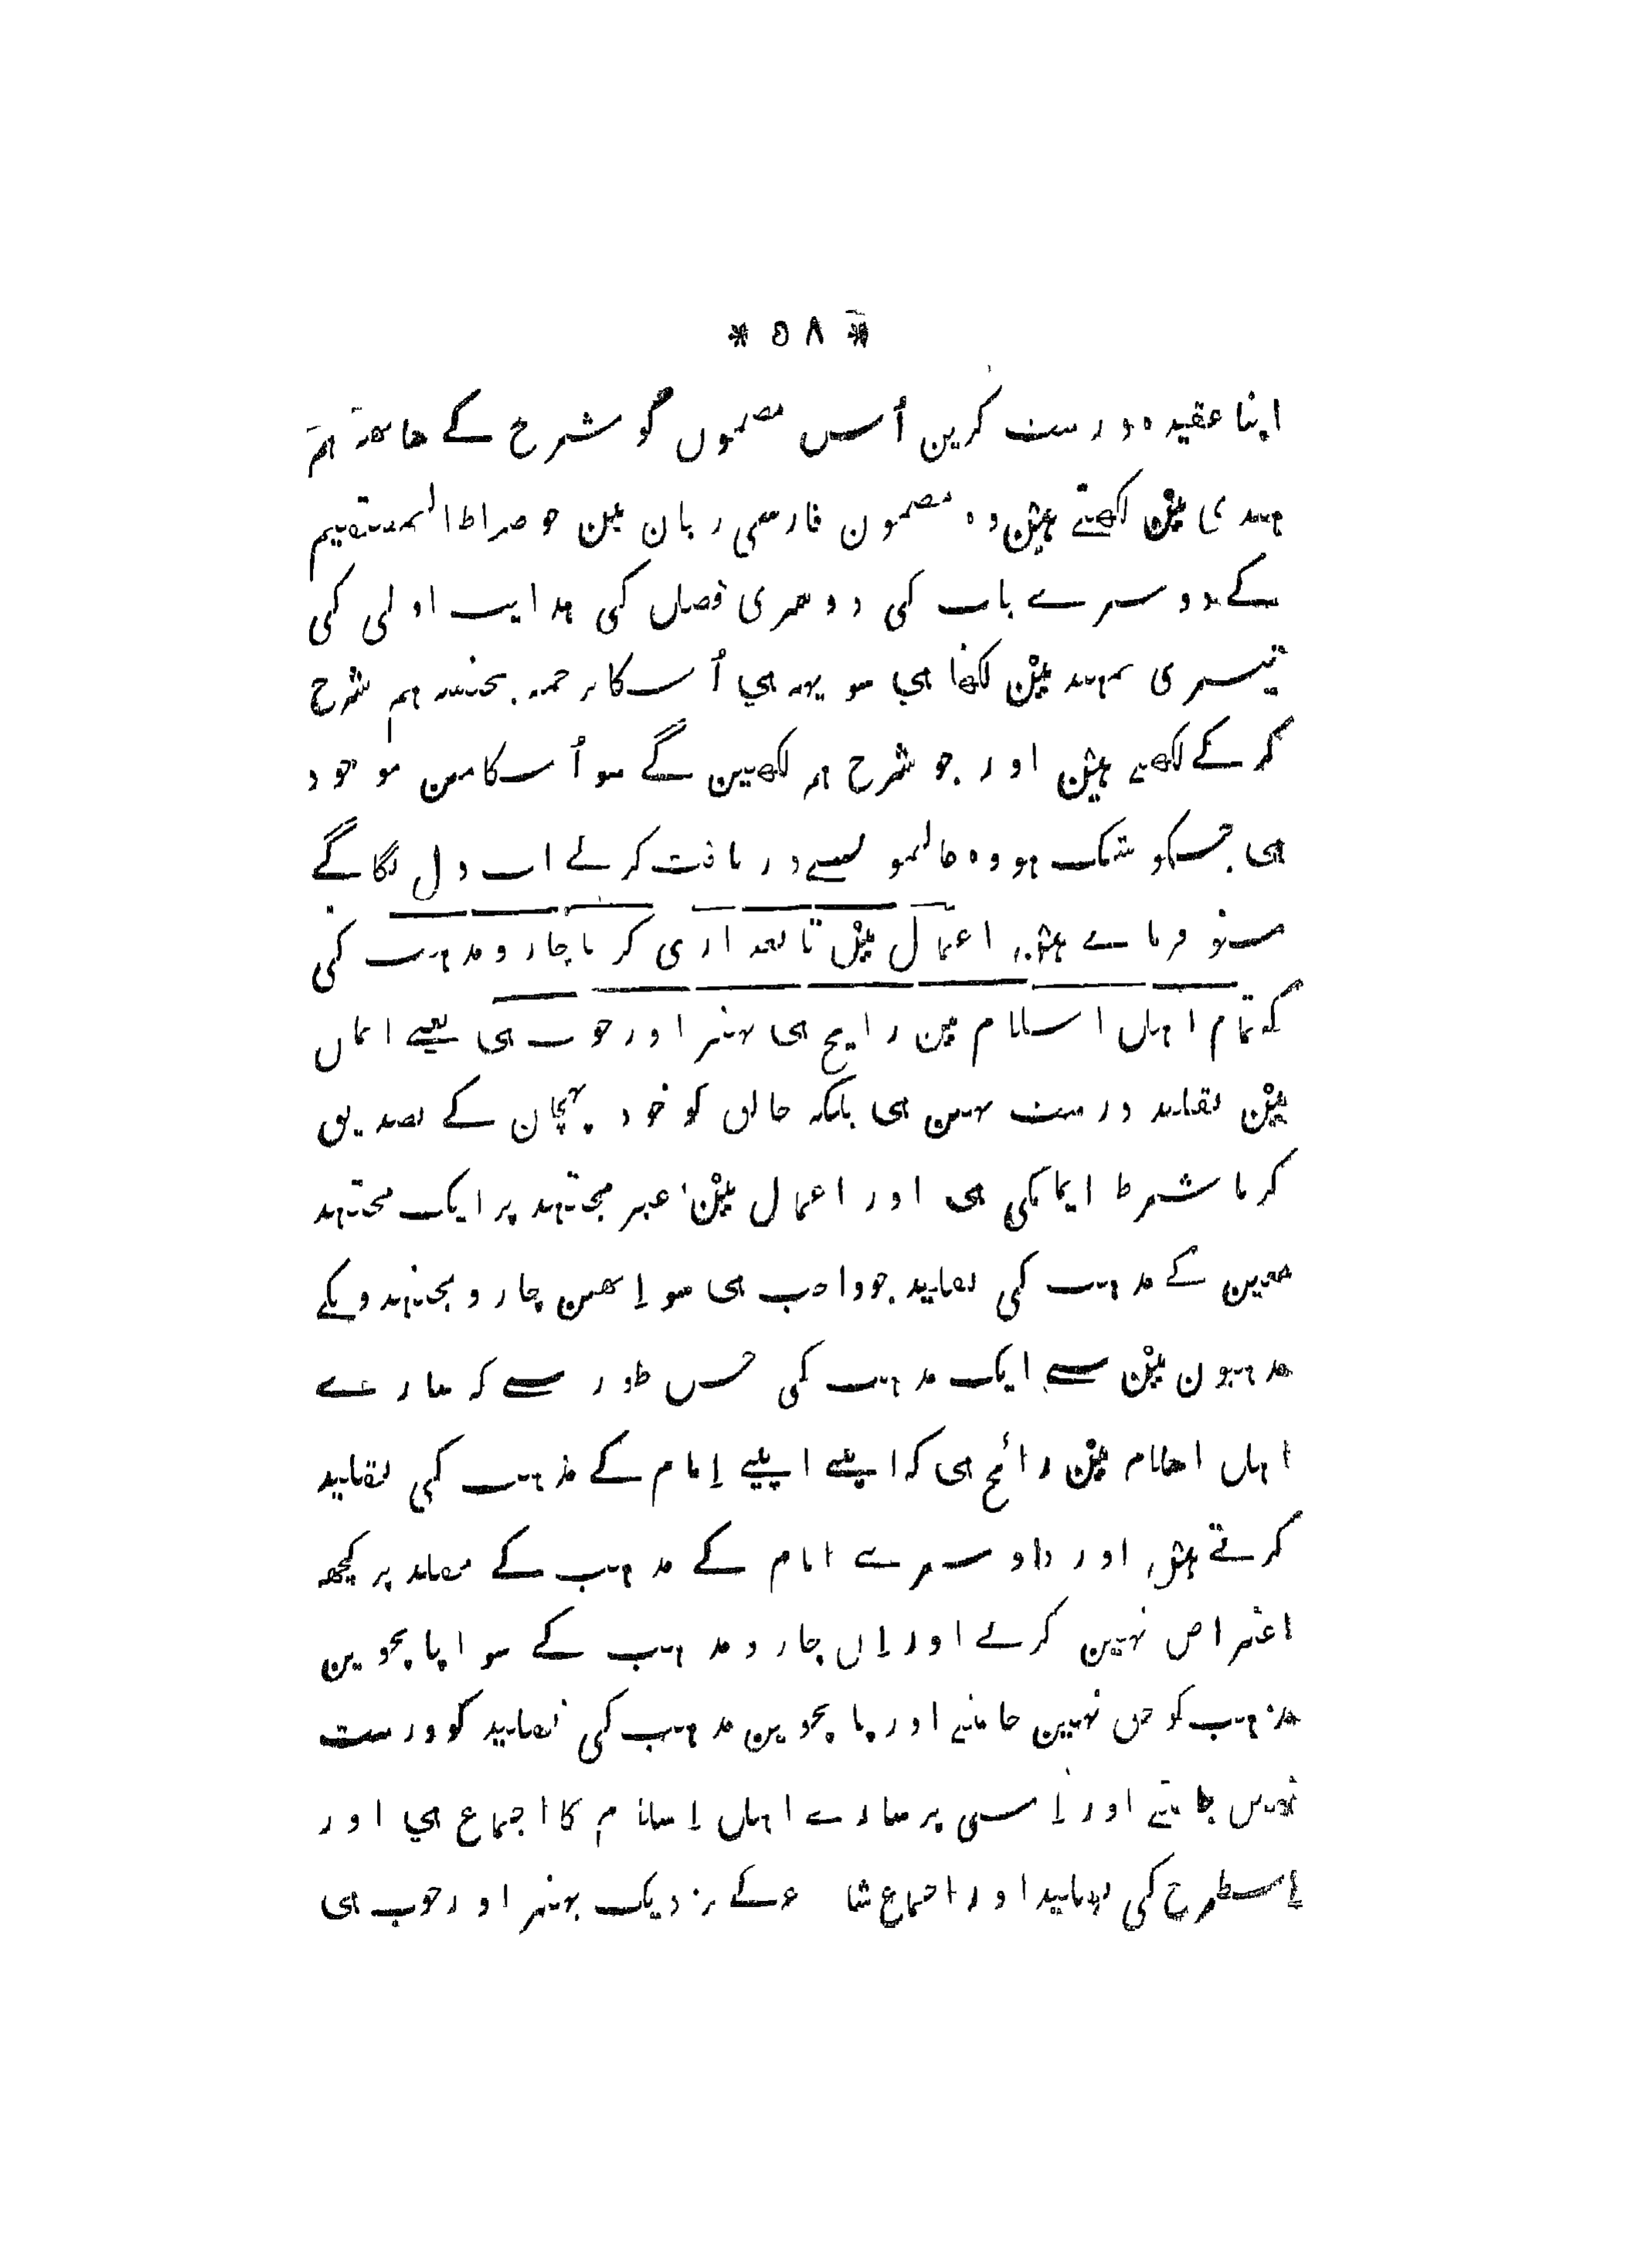 * ٥٨ *
اپنا عقیدہ درست کرین اُس مضمون کو شرح کے ساتھہ ہم
ہندی مین لکھتے ہین وہ مضمون فارسی زبان مین جو صراط المستقیم
کے دوسرے باب کی دوسری فصل کی ہدایت اولی کی
تیسری تمہید مین لکھا ہی سو یہہ ہی اُسکا ترجمہ بجنسہ ہم شرح
کر کے لکھتے ہین اور جو شرح ہم لکھین گے سو اُسکا متن موجود
ہی جسکو شک ہو وہ عالمو نسے دریافت کر لے اب دل لگا کے
سنو فرماتے ہین اعمال مین تابعداری کرنا چارو مذہب کی
کہ تمام اہل اسلام مین رایج ہی بہتر اور خوب ہی یعنے ایمان
مین تقلید درست نہین ہی بلکہ خالق کو خود پہچان کے تصدیق
کرنا شرط ایمانکی ہی اور اعمال مین غیر مجتہد پر ایک مجتہد
معین کے مذہب کی تقلید جو واجب ہی سو اِنھین چارو مجتہدونکے
مذہبون مین سے ایک مذہب کی جس طور سے کہ سارے
اہل اسلام مین رائج ہی کہ اپنے اپنے اِمام کے مذہب کی تقلید
کرتے ہین اور دوسرے امام کے مذہب کے مقلد پر کچھہ
اعتراض نہین کرتے اور اِن چارو مذہب کے سوا پانچوین
مذہب کو حق نہین جانتے اور پانچوین مذہب کی تقلید کو درست
نہین جانتے اور اِسی پر سارے اہل اِسلام کا اجماع ہی اور
اِسطرح کی تقلید اور اجماع شارع کے نزدیک بہتر اور خوب ہی